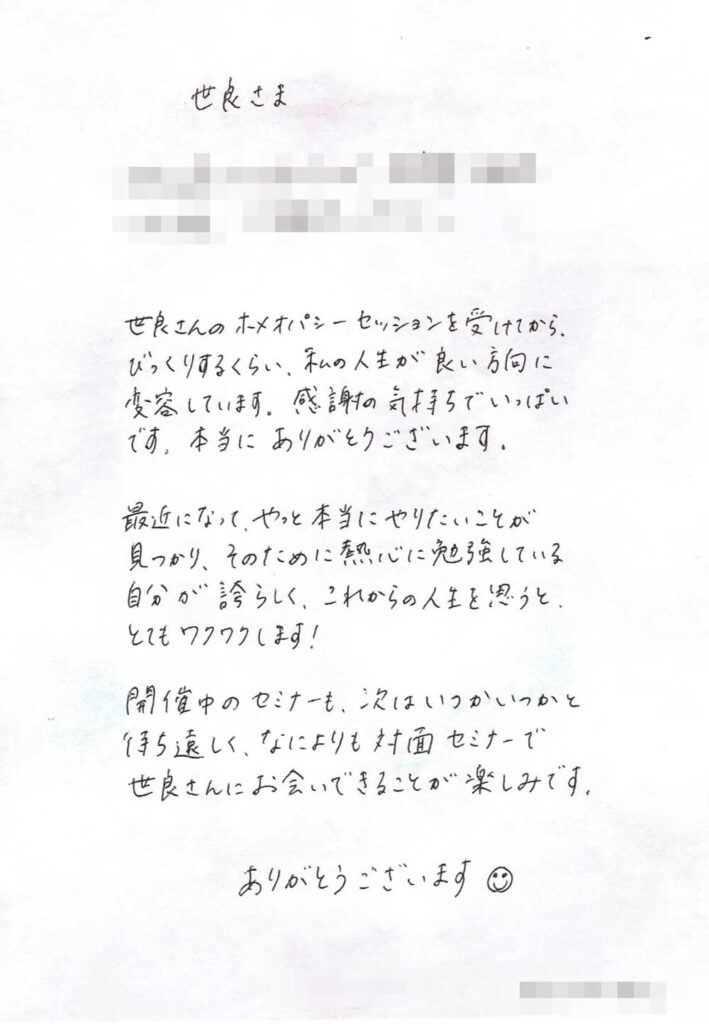 世良さま
世良さんのホメオパシーセッションを受けてから、
びっくりするくらい、私の人生が良い方向に
変容しています。感謝の気持ちでいっぱい
です。本当にありがとうございます。
最近になって、やっと本当にやりたいことが
見つかり、そのために熱心に勉強している
自分が誇らしく、これからの人生を思うと、
とてもワクワクします!
開催中のセミナーも、次はいつかいつかと
待ち遠しく、なによりも対面セミナーで
世良さんにお会いできることが楽しみです。
ありがとうございます